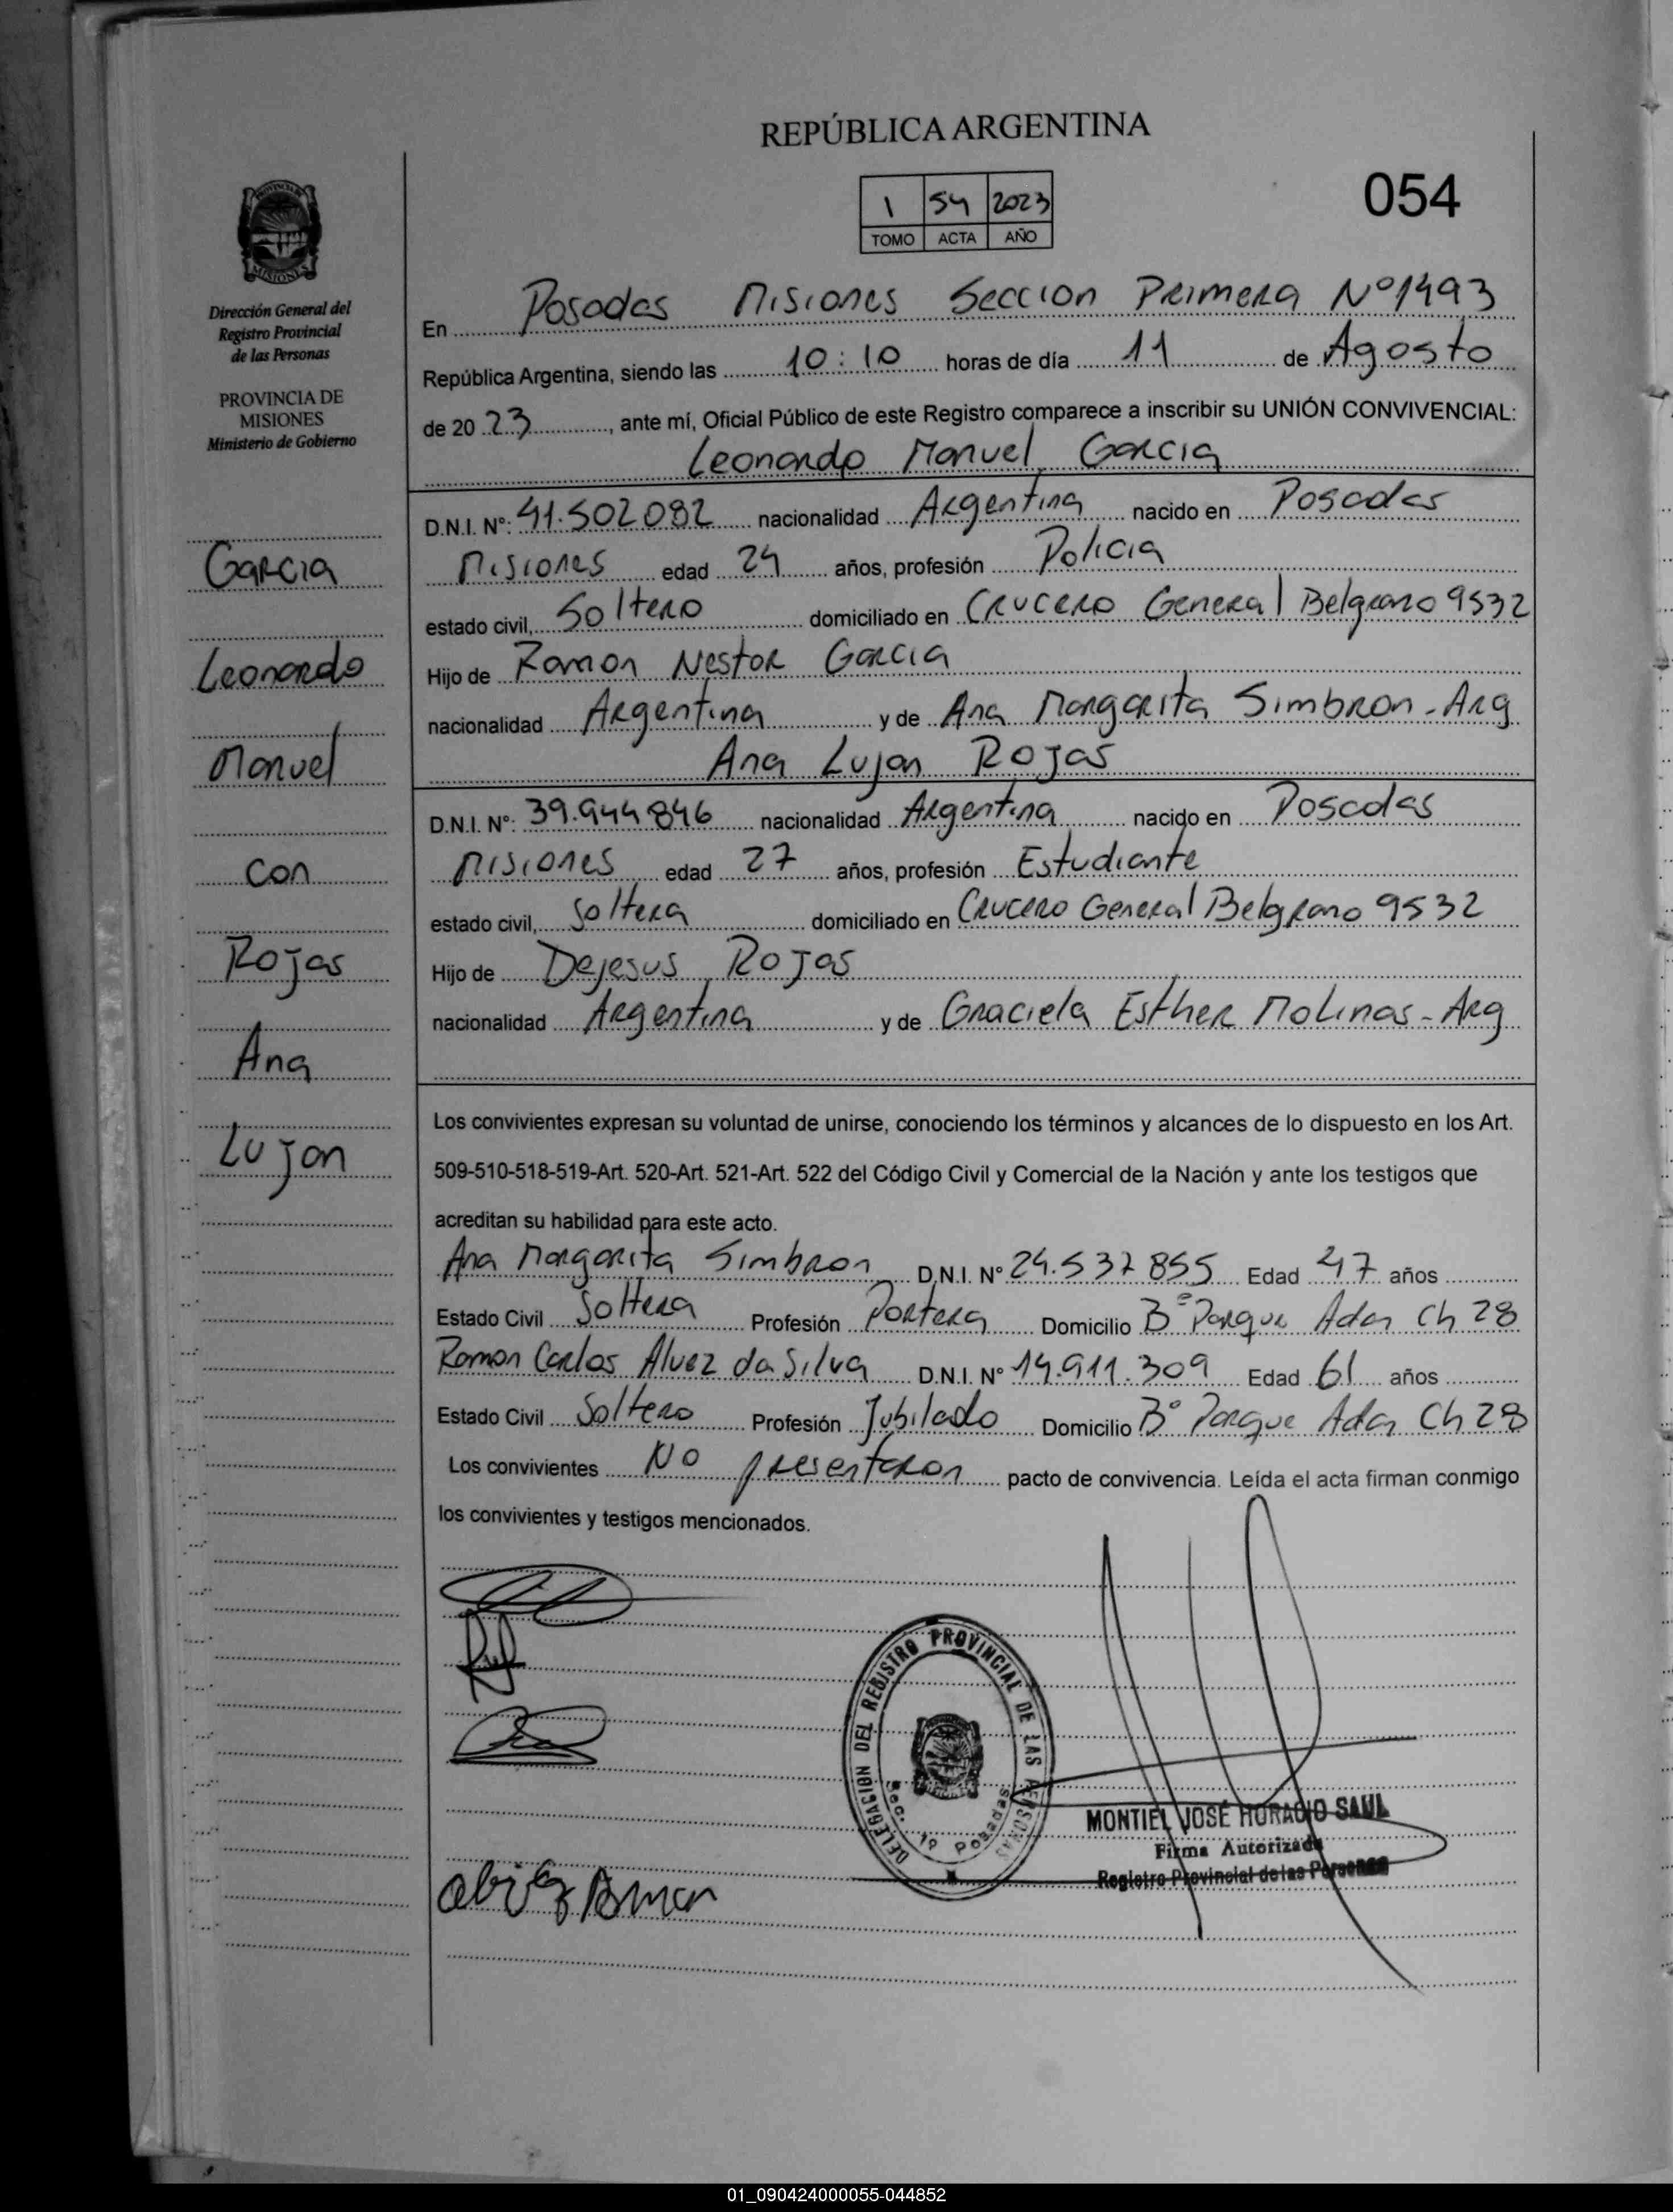 REPÚBLICA ARGENTINA
054
1 54 2023
TOMO ACTA AÑO
PROVINCIA DE
MISIONES
Dirección General del
Registro Provincial
de las Personas
PROVINCIA DE
MISIONES
Ministerio de Gobierno
Garcia
Leonardo
Manuel
con
Rojas
Ana
Lujan
En Posadas Misiones Seccion Primera Nº 1493
República Argentina, siendo las 10:10 horas de día 11 de Agosto
de 20 23, ante mí, Oficial Público de este Registro comparece a inscribir su UNIÓN CONVIVENCIAL:
Leonardo Manuel Garcia
D.N.I. Nº: 41.502082 nacionalidad Argentina nacido en Posadas
Misiones edad 24 años, profesión Policia
estado civil, Soltero domiciliado en Crucero General Belgrano 9532
Hijo de Ramon Nestor Garcia
nacionalidad Argentina y de Ana Margarita Simbron - Arg
Ana Lujan Rojas
D.N.I. Nº: 39.944846 nacionalidad Argentina nacido en Posadas
Misiones edad 27 años, profesión Estudiante
estado civil, Soltera domiciliado en Crucero General Belgrano 9532
Hijo de Dejesus Rojas
nacionalidad Argentina y de Graciela Esther Molinas - Arg
Los convivientes expresan su voluntad de unirse, conociendo los términos y alcances de lo dispuesto en los Art.
509-510-518-519-Art. 520-Art. 521-Art. 522 del Código Civil y Comercial de la Nación y ante los testigos que
acreditan su habilidad para este acto.
Ana Margarita Simbron D.N.I. Nº 24.537855 Edad 47 años
Estado Civil Soltera Profesión Portera Domicilio Bº Parque Adan Ch 28
Ramon Carlos Alvez da Silva D.N.I. Nº 14.911.309 Edad 61 años
Estado Civil Soltero Profesión Jubilado Domicilio Bº Parque Adan Ch 28
Los convivientes No presentaron pacto de convivencia. Leída el acta firman conmigo
los convivientes y testigos mencionados.
DELEGACION DEL REGISTRO PROVINCIAL DE LAS PERSONAS
Sec. 1º Posadas
MONTIEL JOSÉ HORACIO SAUL
Firma Autorizada
Registro Provincial de las Personas
01_090424000055-044852